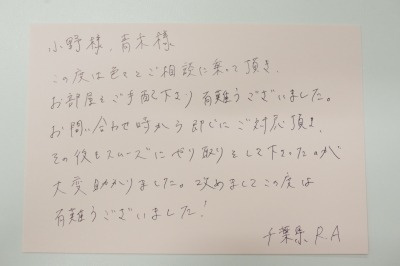 小野様、青木様
この度は色々とご相談に乗って頂き、
お部屋をご手配下さり有難うございました。
お問い合わせ時から即ぐにご対応頂き、
その後もスムーズにやり取りをして下さったのが
大変助かりました。改めましてこの度は
有難うございました!
千葉県 R.A